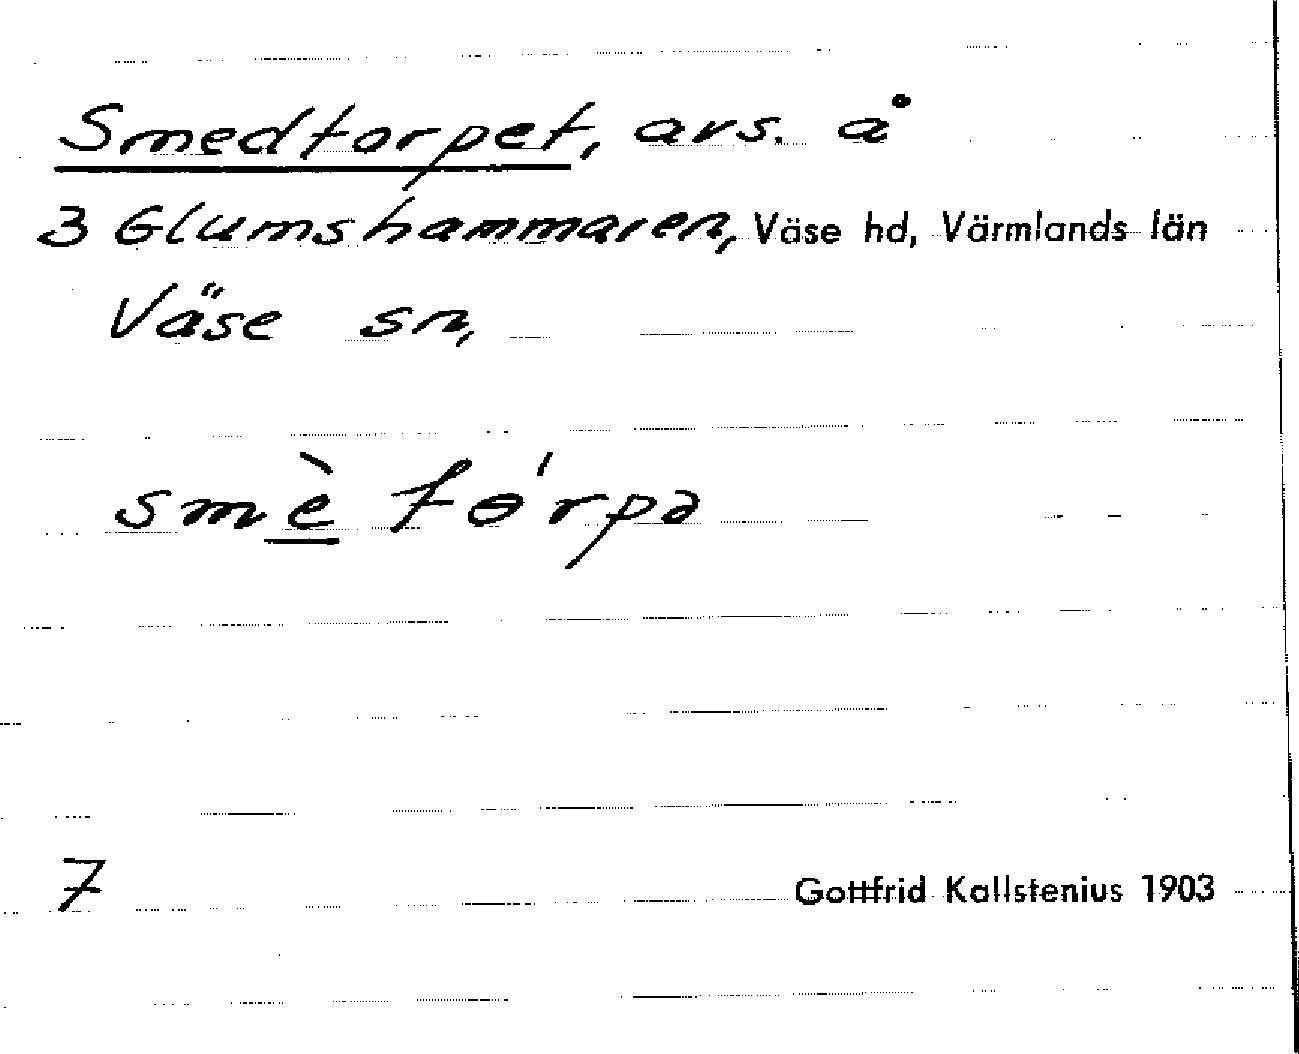 Smedtorpet, avs. å
3 Glumshammaren, Väse hd, Värmlands län
Väse sn,
smè tɵ́rpə
7
Gottfrid Kallstenius 1903